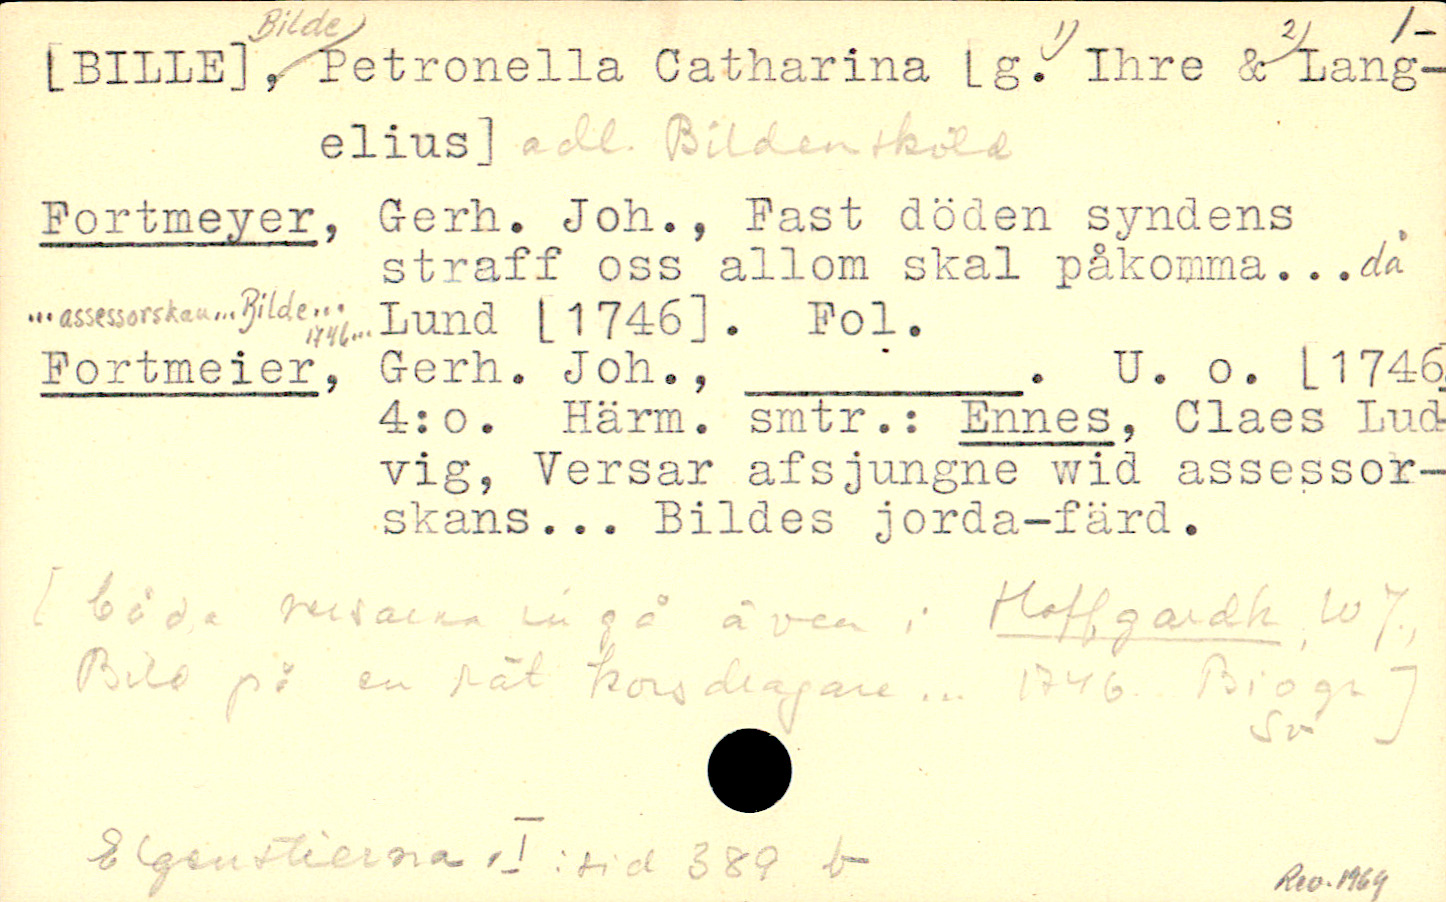 Bilde
[BILLE], Petronella Catharina [g. 1) Ihre & 2) Lang-
1-
elius] adl. Bildensköld
Fortmeyer, Gerh. Joh., Fast döden syndens
straff oss allom skal påkomma...då
...assessorskan...Bilde...
1746...
Lund [1746]. Fol.
Fortmeier, Gerh. Joh., __________. U. o. [1746]
4:o. Härm. smtr.: Ennes, Claes Lud-
vig, Versar afsjungne wid assessor-
skans... Bildes jorda-färd.
[båda verserna ingå även i Hoffgardh, W J.,
Bild på en rät korsdragare... 1746. Biogr
Sv]
Elgenstierna, I : sid 389 b
Rev. 1969